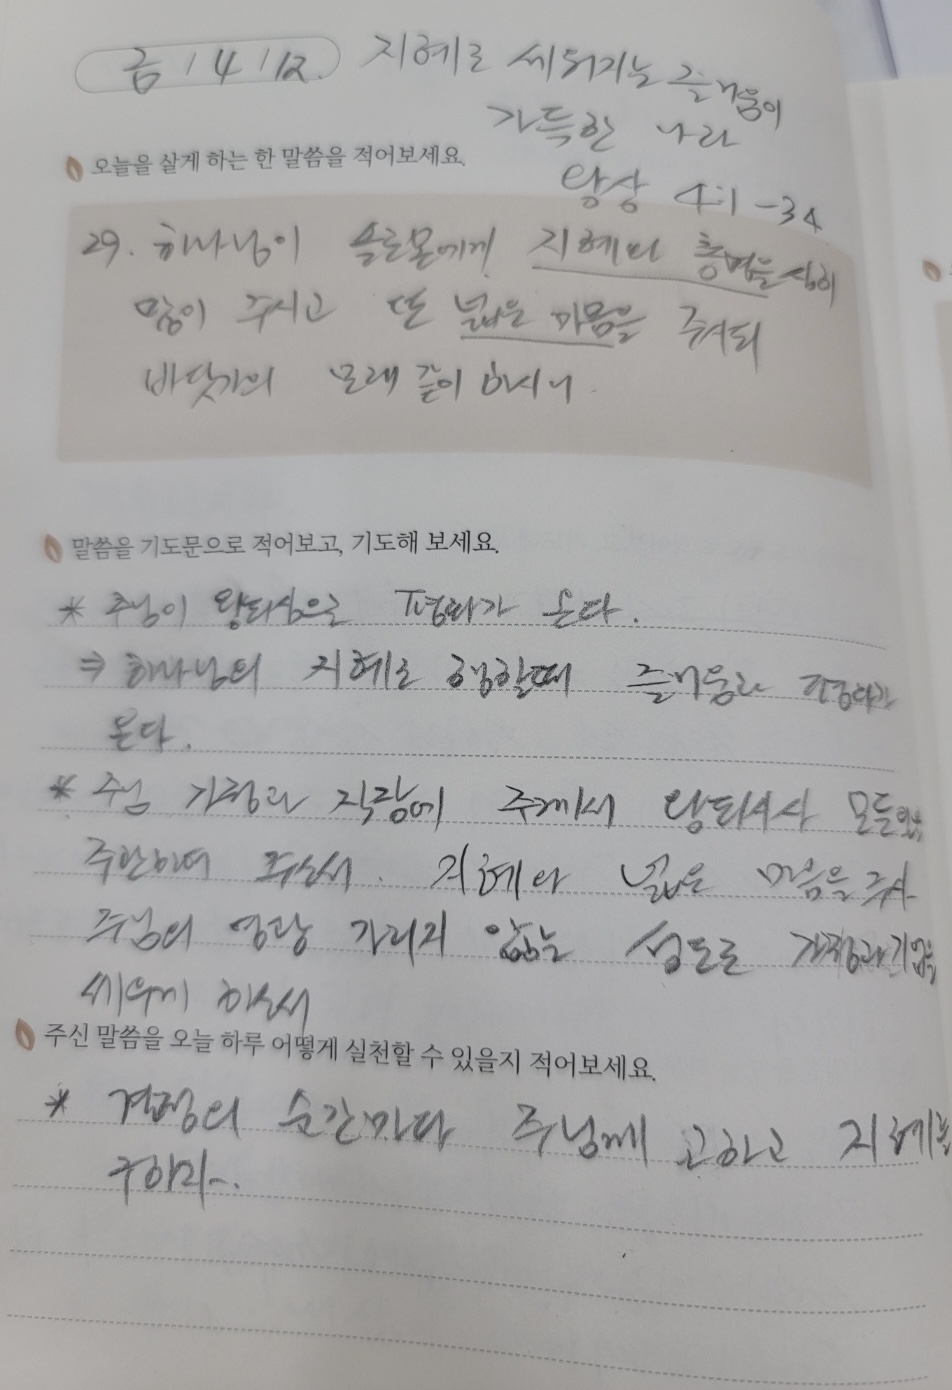 금 / 4 / 12. 지혜로 세워지는 즐거움이
가득한 나라
오늘을 살게 하는 한 말씀을 적어보세요.
왕상 4:1-34
29. 하나님이 솔로몬에게 지혜와 총명을 심히
많이 주시고 또 넓은 마음을 주시되
바닷가의 모래 같이 하시니
말씀을 기도문으로 적어보고, 기도해 보세요.
* 주님이 왕되심으로 평화가 온다.
⇒ 하나님의 지혜로 행할때 즐거움과
온다.
* 주님 가정과 직장에 주께서 왕되사사 모든
주관하여 주소서. 지혜와 넓은 마음을 주사
주님의 영광 가리지 않는 성도로 가정과 기업을
세우게 하소서
주신 말씀을 오늘 하루 어떻게 실천할 수 있을지 적어보세요.
* 결정의 순간마다 주님께 고하고 지혜를
구하자.